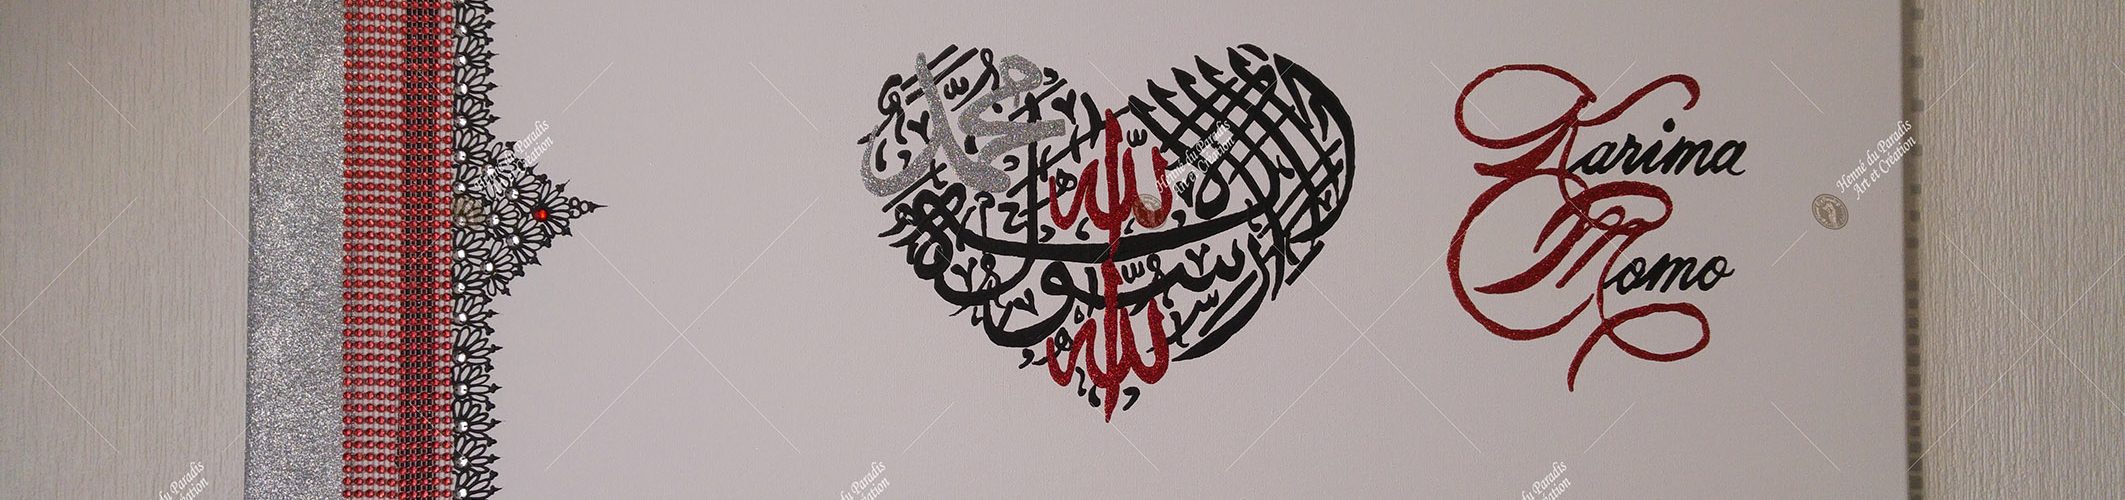 لا إله إلا الله
محمد رسول الله
Karima
Momo
Henné du Paradis
Art et Création
Henné du Paradis
Art et Création
Henné du Paradis
Art et Création
du Paradis
éation
du Paradis
éation
du Paradis
éation